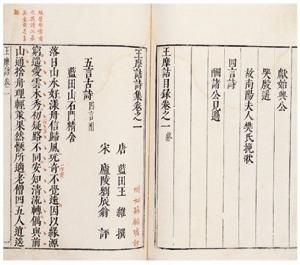 獻始興公
哭殷遙
故南陽夫人樊氏挽歌
四言詩
酬諸公見過
王摩詰詩目錄卷之一 終
王摩詰詩集卷之一
唐 藍田王維 撰
宋 廬陵劉辰翁 評
五言古詩
藍田山石門精舍
落日山水好漾舟信歸風玩奇不覺遠因以緣源
窮遙愛雲木秀初疑路不同安知清流轉偶與前
山通捨舟理輕策果然愜所適老僧四五人逍遙
王摩詰 卷一